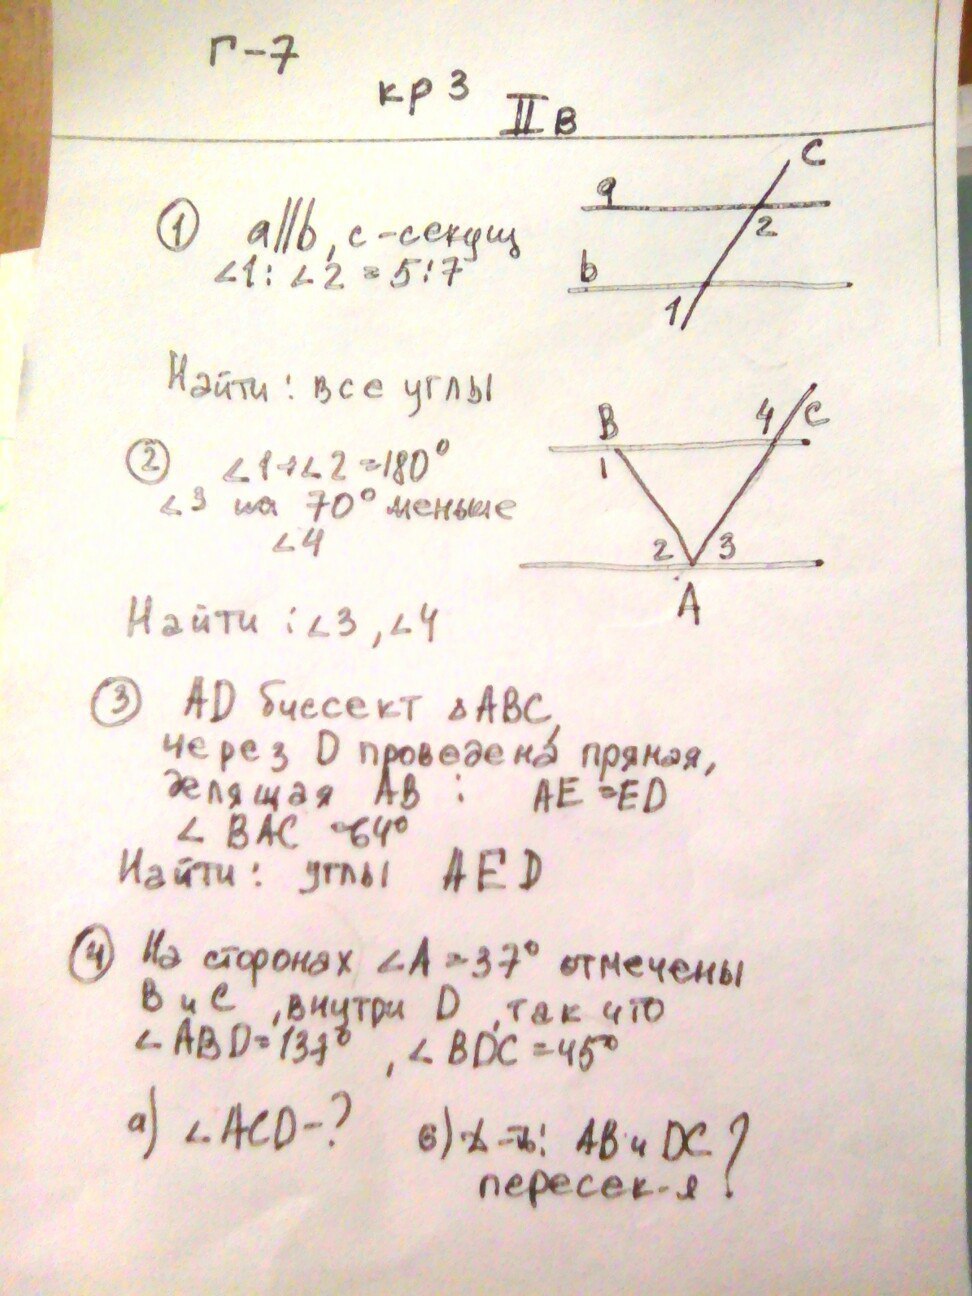 Г-7
кр 3
II в
① a||b, c-секущ
∠1:∠2=5:7
a
b
c
2
1
Найти: все углы
② ∠1+∠2=180°
∠3 на 70° меньше
∠4
B
1
4
C
2
3
A
Найти: ∠3, ∠4
③ AD биссект △ABC,
через D проведена прямая,
делящая AB : AE=ED
∠ BAC = 64°
Найти: углы AED
④ На сторонах ∠A=37° отмечены
B и C, внутри D, так что
∠ABD=137°, ∠BDC=45°
а) ∠ACD-?
AB и DC
пересек-я ?